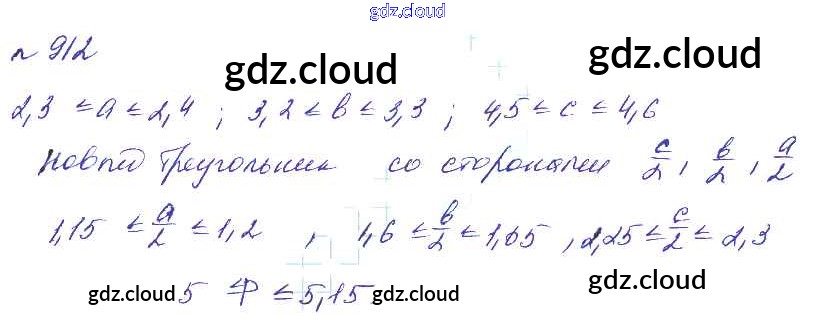 gdz.cloud
№ 912
gdz.cloud gdz.cloud
2,3 ≤ a ≤ 2,4 ; 3,2 ≤ b ≤ 3,3 ; 4,5 ≤ c ≤ 4,6
Новый треугольник со сторонами c/2 , b/2 , a/2
1,15 ≤ a/2 ≤ 1,2 , 1,6 ≤ b/2 ≤ 1,65 , 2,25 ≤ c/2 ≤ 2,3
gdz.cloud 5 ≤ P ≤ 5,15 gdz.cloud gdz.cloud